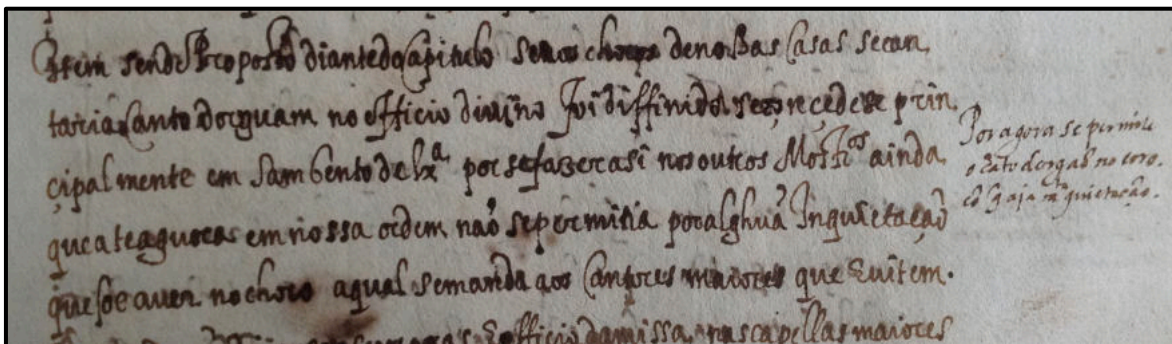 Item sendo Proposto diante do Capitulo se nos choros de nossas Casas se can
taria Canto dorguam no officio divino foi diffinido se concedese prin
çipalmente em Sam bento de lxª por se fazer asi nos outros Mostrºs ainda
que ateaguora em nossa ordem não se permitia por alghuã Inquietação
que soe aver no choro a qual se manda aos Cantores maiores que Evitem.
officio da missa nas capellas maiores
Por agora se permite
o cãto dorgaõ no coro.
cõ q aja mta quietação.